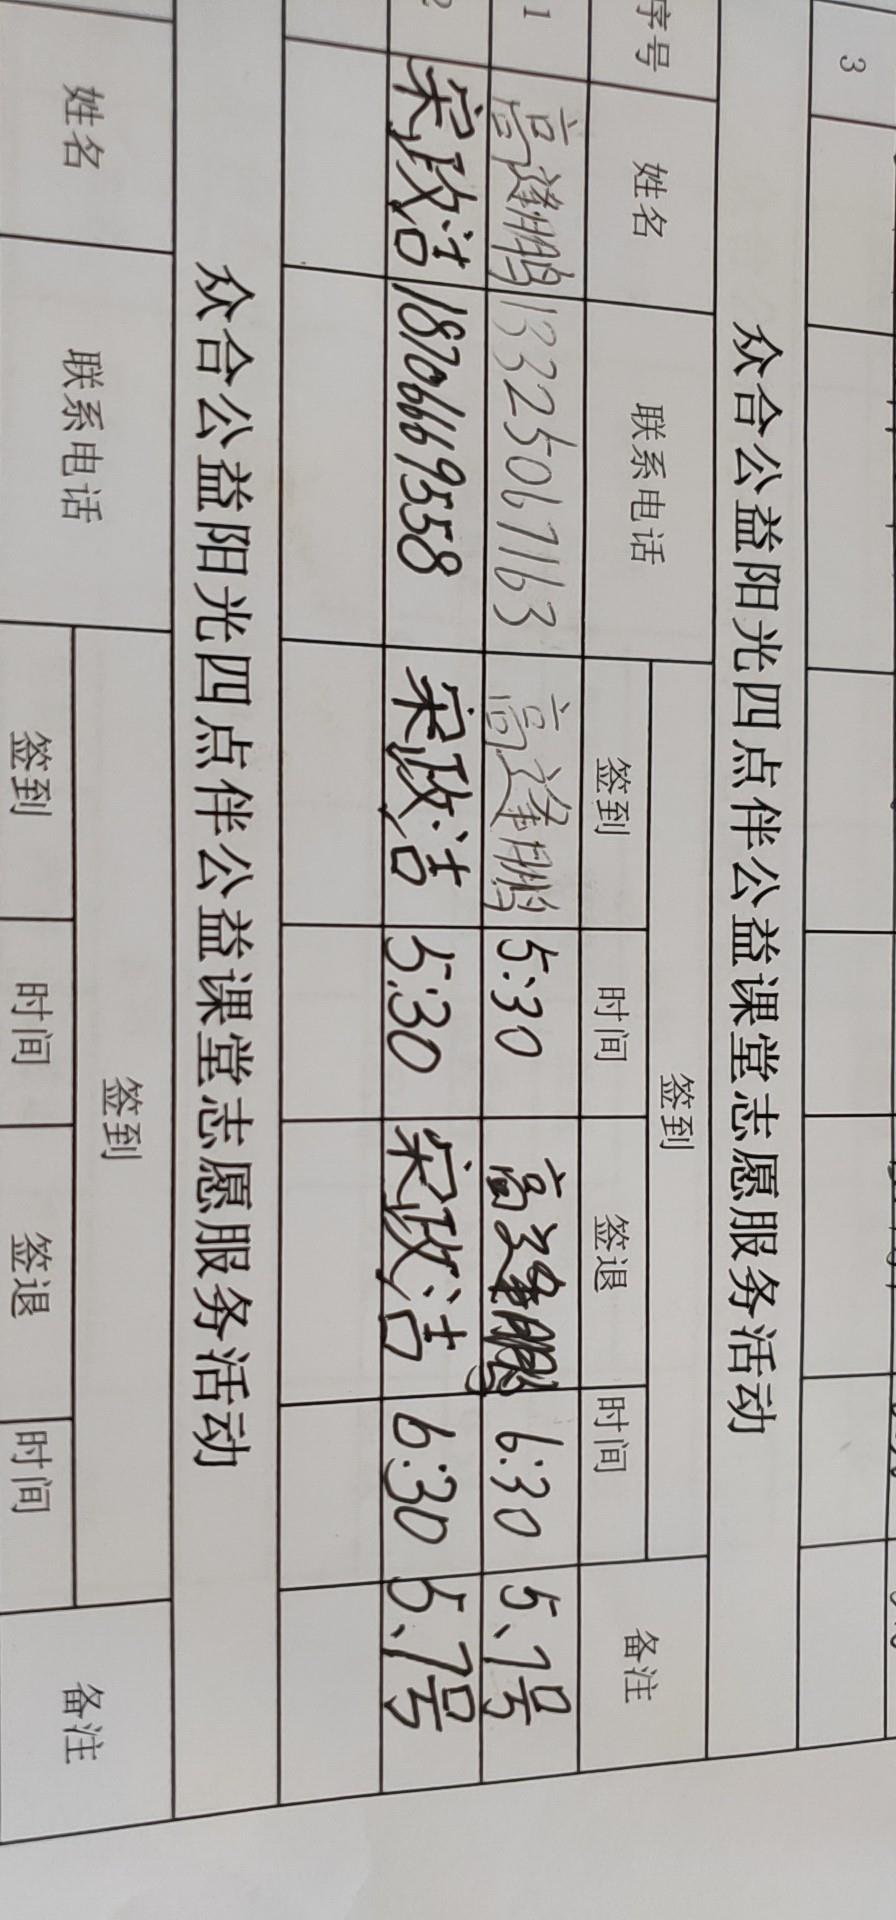 3
众合公益阳光四点伴公益课堂志愿服务活动
序号 姓名 联系电话 签到 备注
签到 时间 签退 时间
1 高逢鹏 13325067163 高逢鹏 5:30 高逢鹏 6:30 5、7号
2 宋政洁 18706669558 宋政洁 5:30 宋政洁 6:30 5、7号
众合公益阳光四点伴公益课堂志愿服务活动
姓名 联系电话 签到 备注
签到 时间 签退 时间